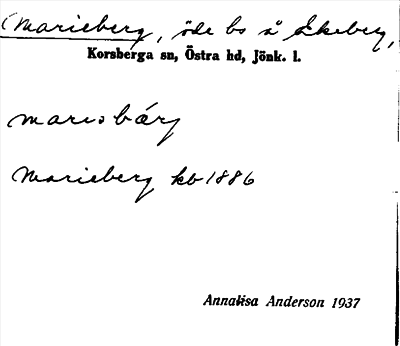 (Marieberg, öde bs å Ekeberg,
Korsberga sn, Östra hd, Jönk. l.
maris bärj
Marieberg kb 1886
Annalisa Anderson 1937